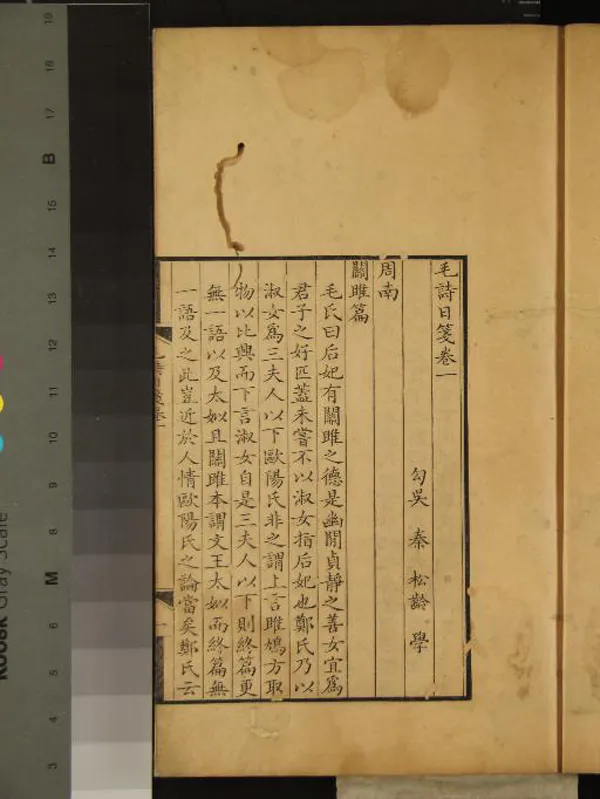 毛詩日箋卷一
勾吳 秦 松齡 學
周南
關雎篇
毛氏曰后妃有關雎之德是幽閒貞靜之善女宜爲
君子之好匹蓋未嘗不以淑女指后妃也鄭氏乃以
淑女爲三夫人以下歐陽氏非之謂上言雎鳩方取
物以比興而下言淑女自是三夫人以下則終篇更
無一語以及太姒且關雎本謂文王太姒而終篇無
一語及之此豈近於人情歐陽氏之論當矣鄭氏云
19
18
17
B
15
14
13
12
11
10
9
8
M
6
5
4
3
Gray Scale